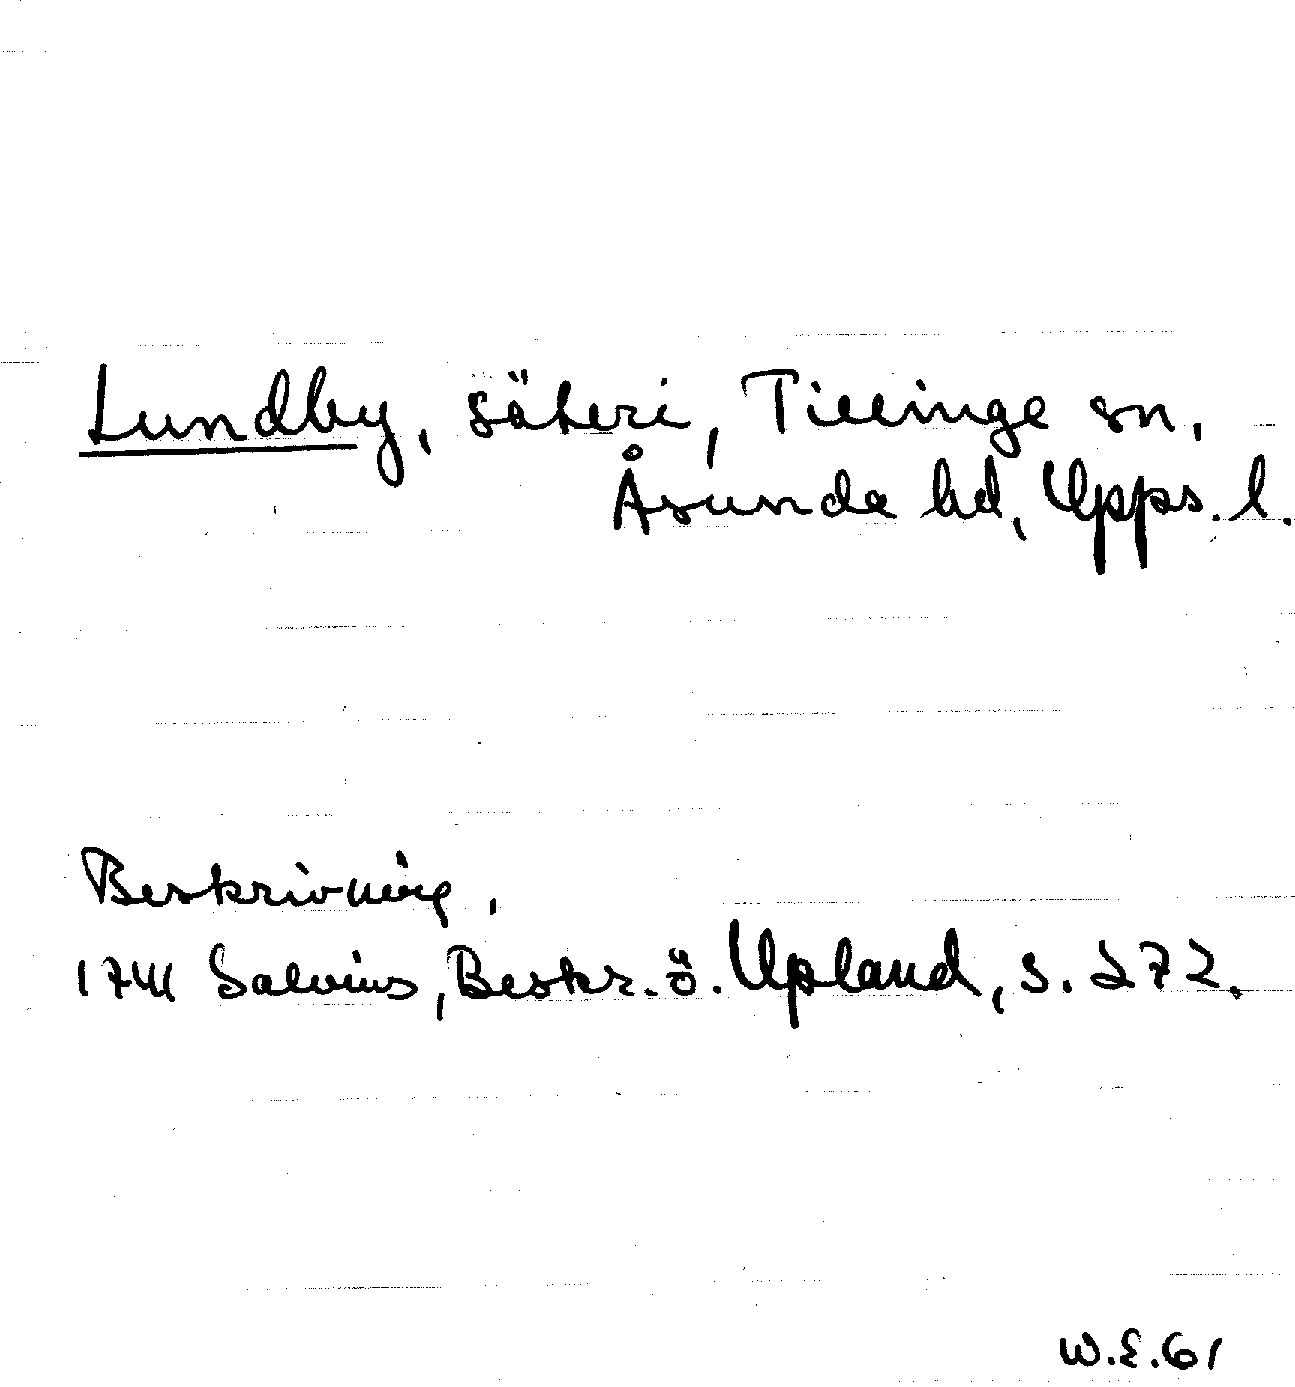 Lundby, säteri, Tillinge sn,
Åsunda hd, Upps. l.
Beskrivning,
1741 Salvius, Beskr. ö. Upland, s. 272.
W.E.61